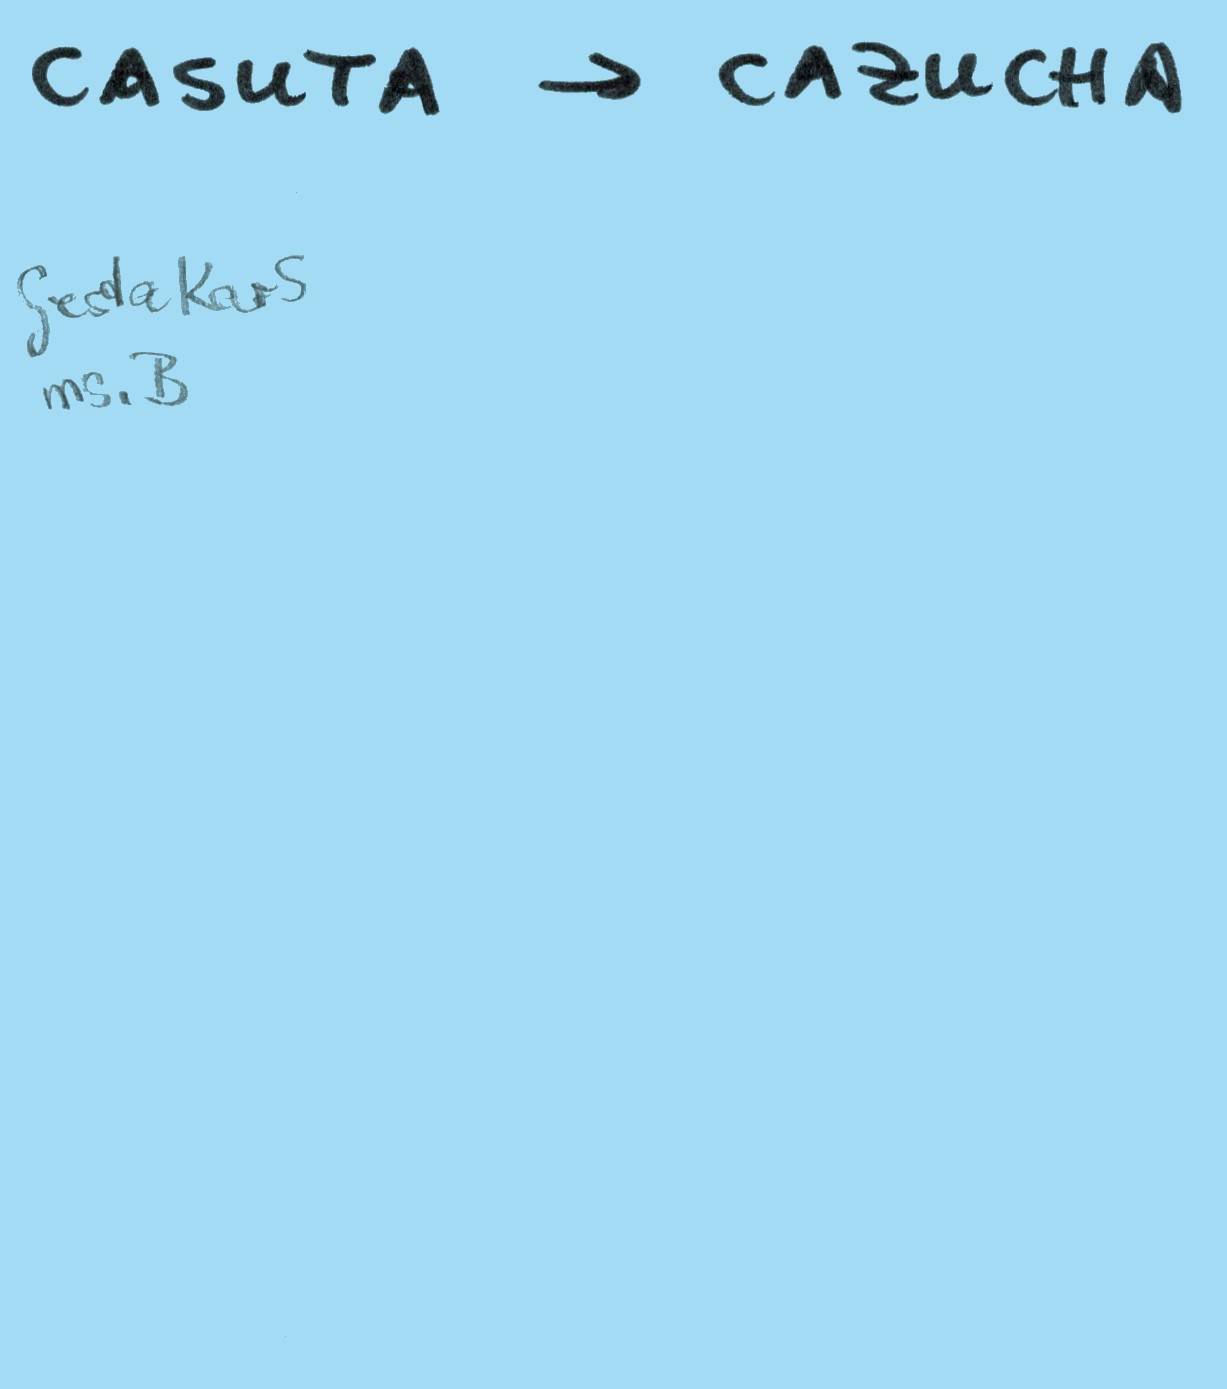 CASUTA → CAZUCHA
Gesta KarS
ms. B